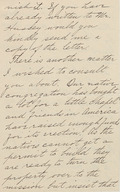 nish it. If you have
already written to Mr.
Hussey would you
kindly send me a
copy of the letter.
There is another matter
I wished to consult
you about. Our native
congregation has bought
a lot for a little chapel
and friends in America
have raised some funds
for its erection. As the
natives cannot get a
permit to build, they
are ready to turn the
property over to the
mission but insist that